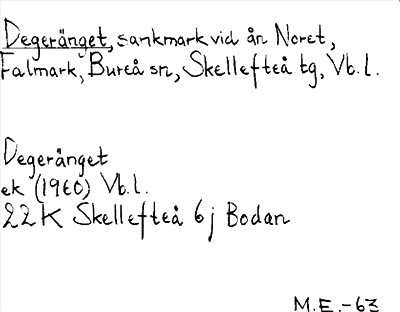 Degeränget, sankmark vid ån Noret,
Falmark, Bureå sn, Skellefteå tg, Vb. l.
Degeränget
ek (1960) Vb. l.
22K Skellefteå 6j Bodan
M.E.-63